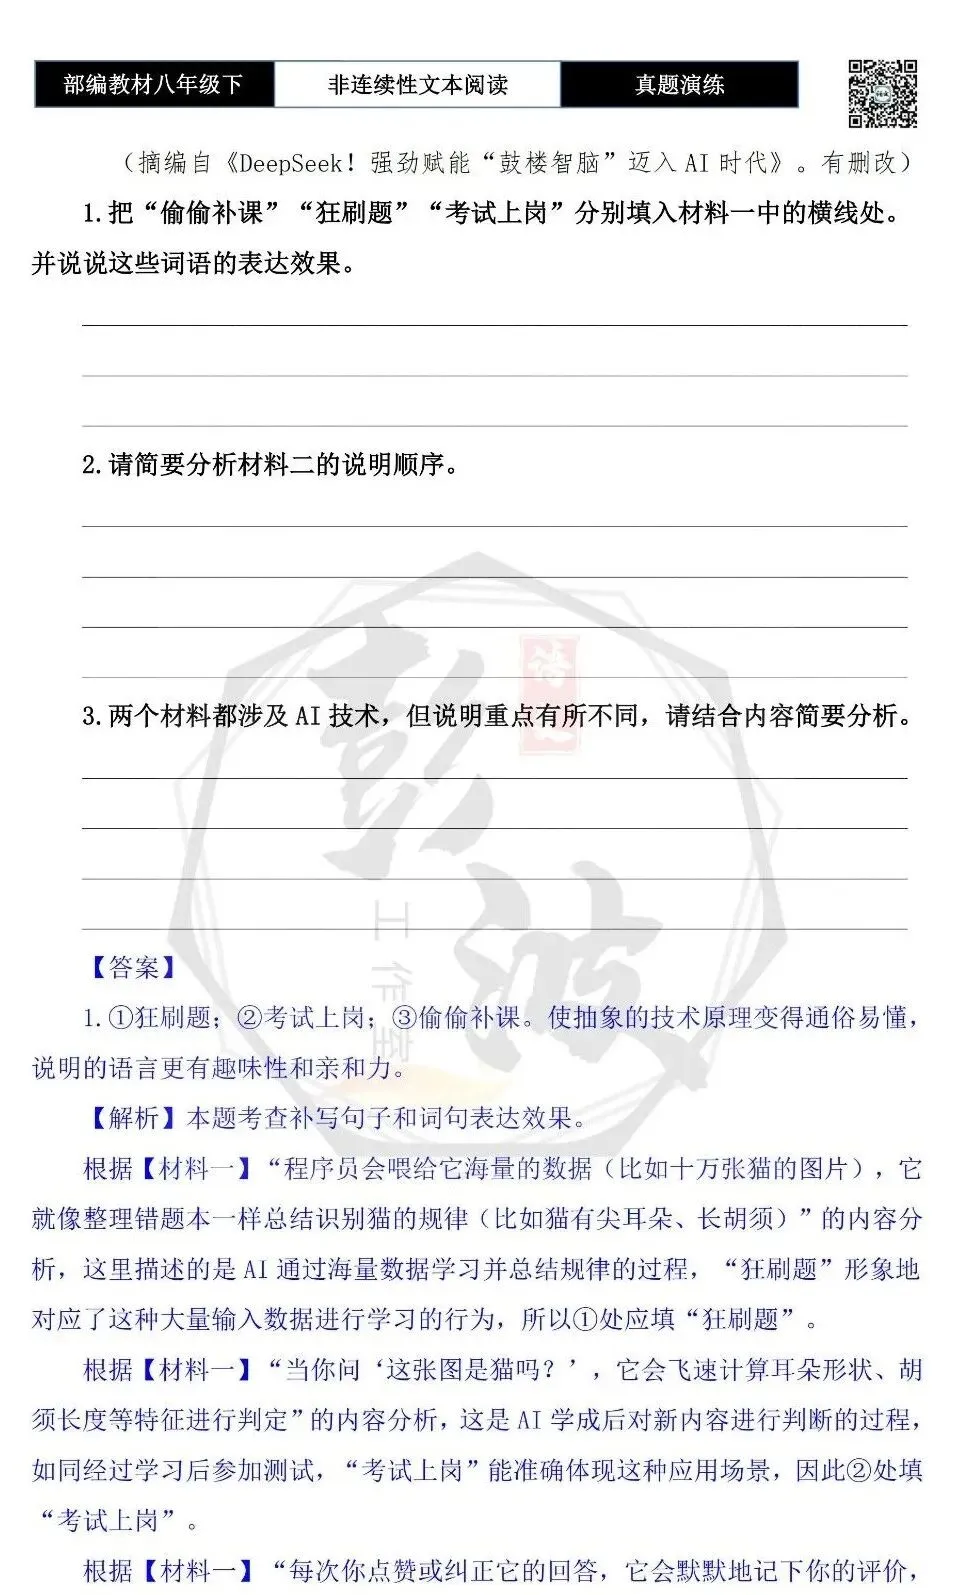 部编教材八年级下 非连续性文本阅读 真题演练
（摘编自《DeepSeek！强劲赋能“鼓楼智脑”迈入 AI 时代》。有删改）
1.把“偷偷补课”“狂刷题”“考试上岗”分别填入材料一中的横线处。
并说说这些词语的表达效果。
2.请简要分析材料二的说明顺序。
3.两个材料都涉及 AI 技术，但说明重点有所不同，请结合内容简要分析。
彭波
工作室
【答案】
1.①狂刷题；②考试上岗；③偷偷补课。使抽象的技术原理变得通俗易懂，
说明的语言更有趣味性和亲和力。
【解析】本题考查补写句子和词句表达效果。
根据【材料一】“程序员会喂给它海量的数据（比如十万张猫的图片），它
就像整理错题本一样总结识别猫的规律（比如猫有尖耳朵、长胡须）”的内容分
析，这里描述的是 AI 通过海量数据学习并总结规律的过程，“狂刷题”形象地
对应了这种大量输入数据进行学习的行为，所以①处应填“狂刷题”。
根据【材料一】“当你问‘这张图是猫吗？’，它会飞速计算耳朵形状、胡
须长度等特征进行判定”的内容分析，这是 AI 学成后对新内容进行判断的过程，
如同经过学习后参加测试，“考试上岗”能准确体现这种应用场景，因此②处填
“考试上岗”。
根据【材料一】“每次你点赞或纠正它的回答，它会默默地记下你的评价，